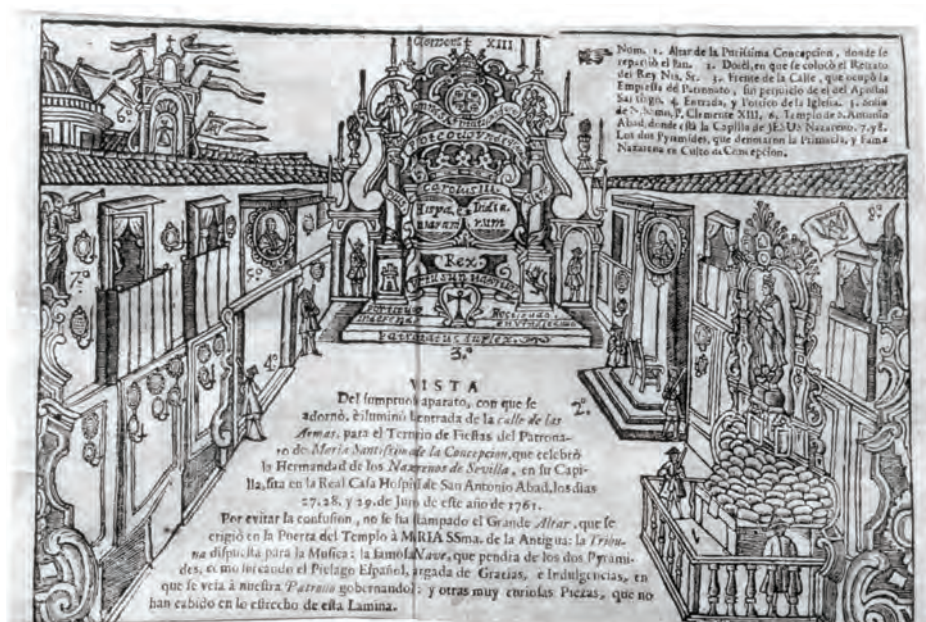 Clemens XIII
Nom. 1. Altar de la Purissima Concepcion, donde se
repartiò el Pan. 2. Dosèl, en que se colocò el Retrato
del Rey Nro. Sr. 3. Frente de la Calle, que ocupò la
Empressa del Patronato, sin perjuicio de el del Apostol
Santiago. 4. Entrada, y Portico de la Iglesia. 5. Solio
de N. Smo. P. Clemente XIII. 6. Templo de S. Antonio
Abad, donde està la Capilla de JESUS Nazareno. 7. y 8.
Los dos Pyramides, que denotaron la Primacia, y Fama
Nazarena en Culto da Concepcion.
6.º
Carolus III.
Hispa- & India-
niarum rum
Rex.
7.º
5.º
8.º
4.º
Patronatus duplex.
3.º
2.º
VISTA
Del sumptuoso aparato, con que se
adornò, è iluminò la entrada de la calle de las
Armas, para el Ternario de Fiestas del Patrona-
to de Maria Santissima de la Concepcion, que celebrò
la Hermandad de los Nazarenos de Sevilla, en su Capi-
lla, sita en la Real Casa Hospital de San Antonio Abad, los dias
27. 28. y 29. de Junio de este año de 1761.
Por evitar la confusion, no se ha estampado el Grande Altar, que se
erigiò en la Puerta del Templo à MARIA SSma. de la Antigua: la Tribu-
na dispuesta para la Musica: la famosa Nave, que pendia de los dos Pyrami-
des, como surcando el Pielago Español, cargada de Gracias, e Indulgencias, en
que se veía à nuestra Patrona gobernandola: y otras muy curiosas Piezas, que no
han cabido en lo estrecho de esta Lamina.